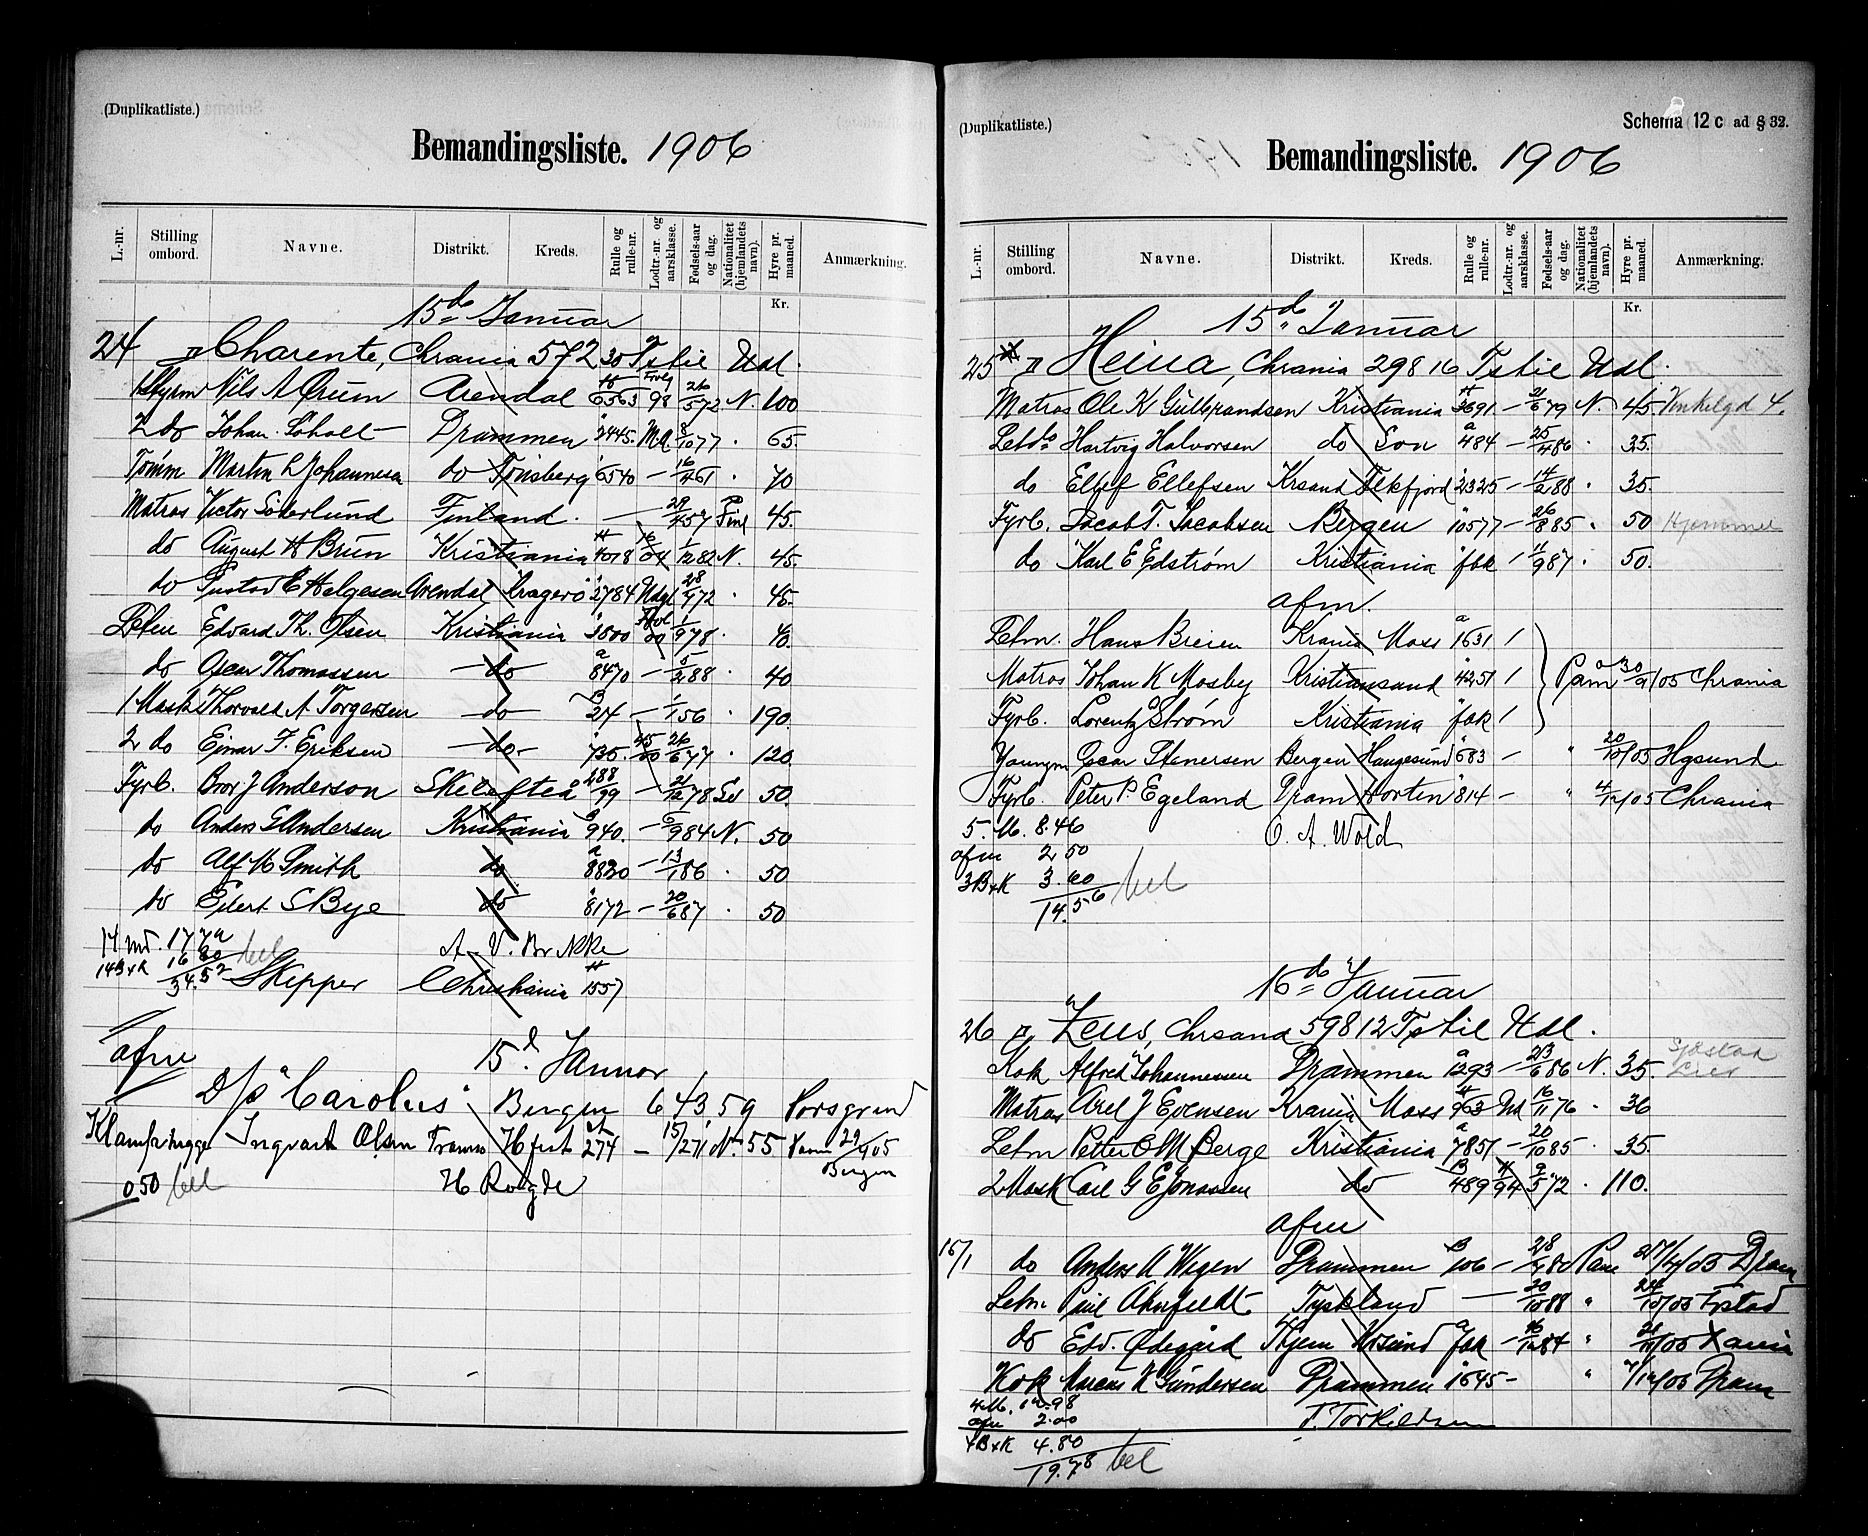 (Duplikatliste.)
Bemandingsliste. 1906
L.-nr. Stilling ombord. Navne. Distrikt. Kreds. Rulle og rulle-nr. Lodtr.-nr. og aarsklasse. Fødsels-aar og dag. Nationalitet (hjemlandets navn). Hyre pr. maaned. Anmærkning.
Kr.
15de Januar
24 Charente, Chrania 572 30 Tstil Udl.
1 Styrm Nils A Ørum Arendal 6563 98 26/5 72 N. 100
2 do Johan Soholt Drammen 2445. M.A. 8/10 77 65
Tømm Martin L Johannesen do Tønsberg 6540 — 16/4 61 70
Matros Victor Söderlund Finland. — 29/4 57 Finl 45.
do August H Brun Kristiania 4018 16/04 1/12 82 N. 45.
do Gustav E Helgesen Arendal Kragerø 2784 Udsgl 28/4 72 45.
Letm Edvard Th. Olsen Kristiania 3800 00 1/9 78. 40.
do Oscar Thomassen — do — 8470 — 5/2 88 40
1 Mask Thorvald A Torgersen — do — 24 — 1/1 56 190.
2 do Einar F. Eriksen — do — 735. 45/00 26/6 77 120.
Fyrb. Bror J Anderson Skelefteå 488/99 — 21/12 78 Sv 50.
do Anders G Andersen Kristiania 940. — 5/9 84 N. 50
do Alf M Smith do 8830 — 13/1 86 50
do Eilert S Bye do 8172 — 20/6 87 50
14 md. 17.72 A. V. Brekke
14 B+K 16 80 bel
34.52 Skipper Christiania 1557
afm 15d Januar
D/S Carolus Bergen 643,59 Porsgrund
Ingvart Olsen Tromsø Hfest 274 — 15/2 71 N. 55 29/9 05
Bergen
0 50 bel H Rogde
(Duplikatliste.)
Schema 12 c ad § 32.
Bemandingsliste. 1906
L.-nr. Stilling ombord. Navne. Distrikt. Kreds. Rulle og rulle-nr. Lodtr.-nr. og aarsklasse. Fødsels-aar og dag. Nationalitet (hjemlandets navn). Hyre pr. maaned. Anmærkning.
Kr.
15de Januar
25 Heina, Chrania 298 16 Tstil Udl.
Matros Ole K Gulbrandsen Kristiania 3691 — 21/6 79 N. 45 Vinkelgd 4.
Letdo Hartvig Halvorsen do Son 484 — 25/4 86 35.
do Ellef Ellefsen Krsand Flekfjord 2325 — 14/2 88 35.
Fyrb. Jacob T. Jacobsen Bergen 10577 — 26/8 85 50 Hjemme
do Karl E Edstrøm Kristiania fbk 11/9 87 50.
afm.
Letm. Hans Breien Krania Moss 1631
Matros Johan K Mosby Kristiansand 4251 Paam 30/9/05 Chrania
Fyrb. Lorentz Strøm Kristiania fbk
Youngm Oscar Stenersen Bergen Haugesund 683 — " 20/10/05 Hgsund
Fyrb. Peter P. Egeland Dram Horten 814 — " 4/12/05 Chrania
5. M. 8.46 O. A. Wold
afm 2 50
3 B+K 3.60
14.56 bel
16de Januar
26 Zeus, Chrsand 598 12 Tstil Udl.
Kok Alfred Johannessen Drammen 1293 — 23/6 86 N. 35.
Matros Axel J Evensen Krania Moss 963 Ud 16/11 76 36
Letm Petter O M Berge Kristiania 7851 — 20/10 85 35.
2 Mask Carl G E Jonassen do 489 94 9/5 72 110.
afm
15/1 do Anders A Wegen Drammen 106 — 28/4 80 Paa Dram
Letm. Paul Tyskland — 20/10 88 " 24/10/05 Frstad
do Edv. Ødegård Thjem Krsund fbk — 16/12 84 " Xania
Kok Marcus K Gundersen Drammen 1645 — " 7/12/05 Dram
4 M. 12.98 T. Torkildsen
afm 2.00
4 B+K 4.80
19.78 bel